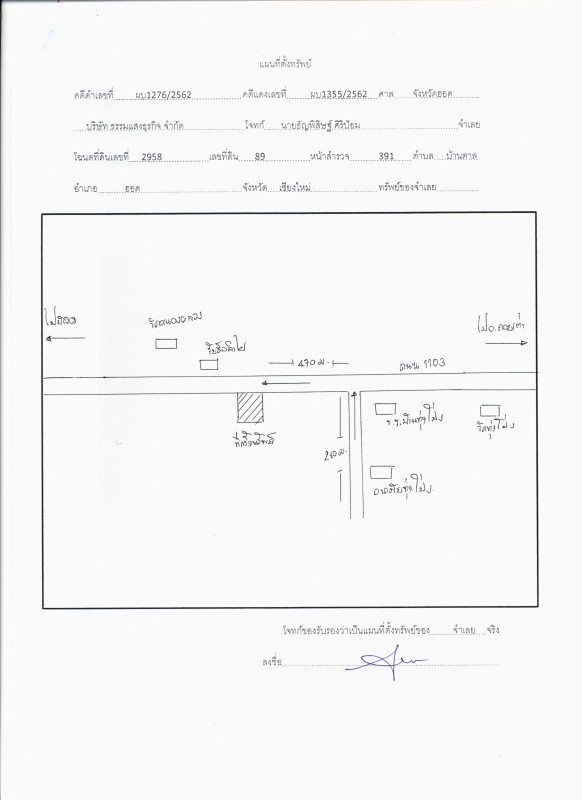 แผนที่ตั้งทรัพย์
คดีดำเลขที่ ผบ1276/2562 คดีแดงเลขที่ ผบ1355/2562 ศาล จังหวัดฮอด
บริษัท ธรรมแสงธุรกิจ จำกัด โจทก์ นายธัญพิสิษฐ์ ศิริป้อม จำเลย
โฉนดที่ดินเลขที่ 2958 เลขที่ดิน 89 หน้าสำรวจ 391 ตำบล บ้านตาล
อำเภอ ฮอด จังหวัด เชียงใหม่ ทรัพย์ของจำเลย
ไปฮอด
ไป อ.ดอยเต่า
470 ม.
ถนน 1103
ที่ตั้งทรัพย์
ร.ร.บ้านทุ่งโป่ง
วัดทุ่งโป่ง
อนามัยทุ่งโป่ง
โจทก์ขอรับรองว่าเป็นแผนที่ตั้งทรัพย์ของ จำเลย จริง
ลงชื่อ